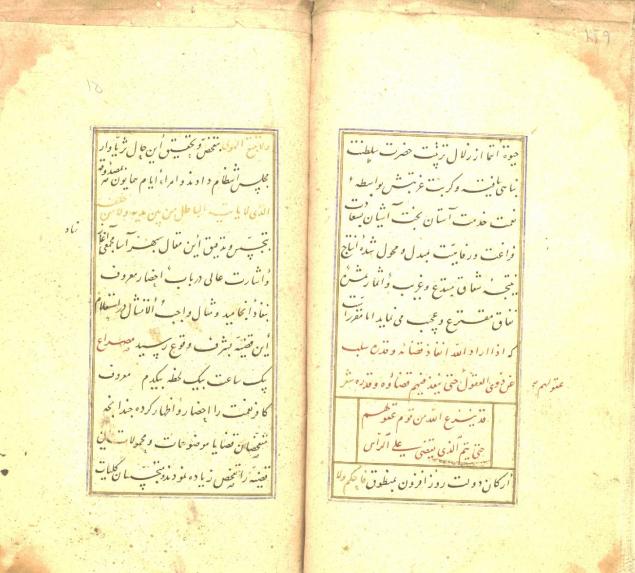 ۲۵۹
حیوة انما از زلال تربیت حضرت سلطنت
یافته و کربت غربتش بواسطهٔ
خدمت آستان آشیان بسعادت
فراغت و رفاهیت مبدل و محول شده انتاج
نتیجهٔ شقاق مبتدع و غریب و اثمار ثمرهٔ
نفاق مخترع و عجیب می نماید اما مقررات
که اذا اراد الله انفاذ قضائه و قدره سلب
عن ذوی العقول حتی ینفذ فیهم قضاؤه و قدره شعر
عقولهم
قد ینزع الله من قوم عقولهم
حتی یتم الذی یقضی علی الرأس
ارکان دولت روز افزون بمنطوق فاحکم ولا
۱۵
ولا تتبع الهوی بتفحص و تحقیق این حال ثریاوار
مجلس انتظام دادند و امراء ایام همایون بصدوقهٔ
الذی لا یاتیه الباطل من بین یدیه ولا من خلفه
بتجسس و تدقیق این مقال سپهر آسا آغاز
ناه
و اشارت عالی در باب احضار معروف
بنفاذ انجامید و مثال واجب الامتثال در استعلام
این قضیه بشرف وقوع رسید مصراع
یک ساعت یک لحظه یکدم معروف
کافر نعمت را احضار و اظهار کرده چندانچه
متفحصان قضایا موضوعات و محمولات این
قضیه را تفحص زیاده نمودند و متجسسان کلیات